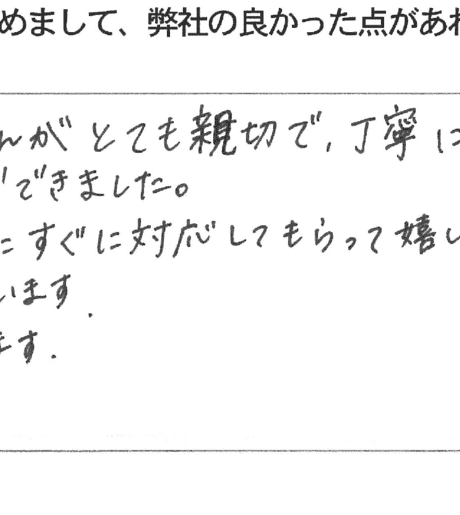 めまして、弊社の良かった点があれ
んがとても親切で、丁寧に
できました。
にすぐに対応してもらって嬉し
います.
ます.